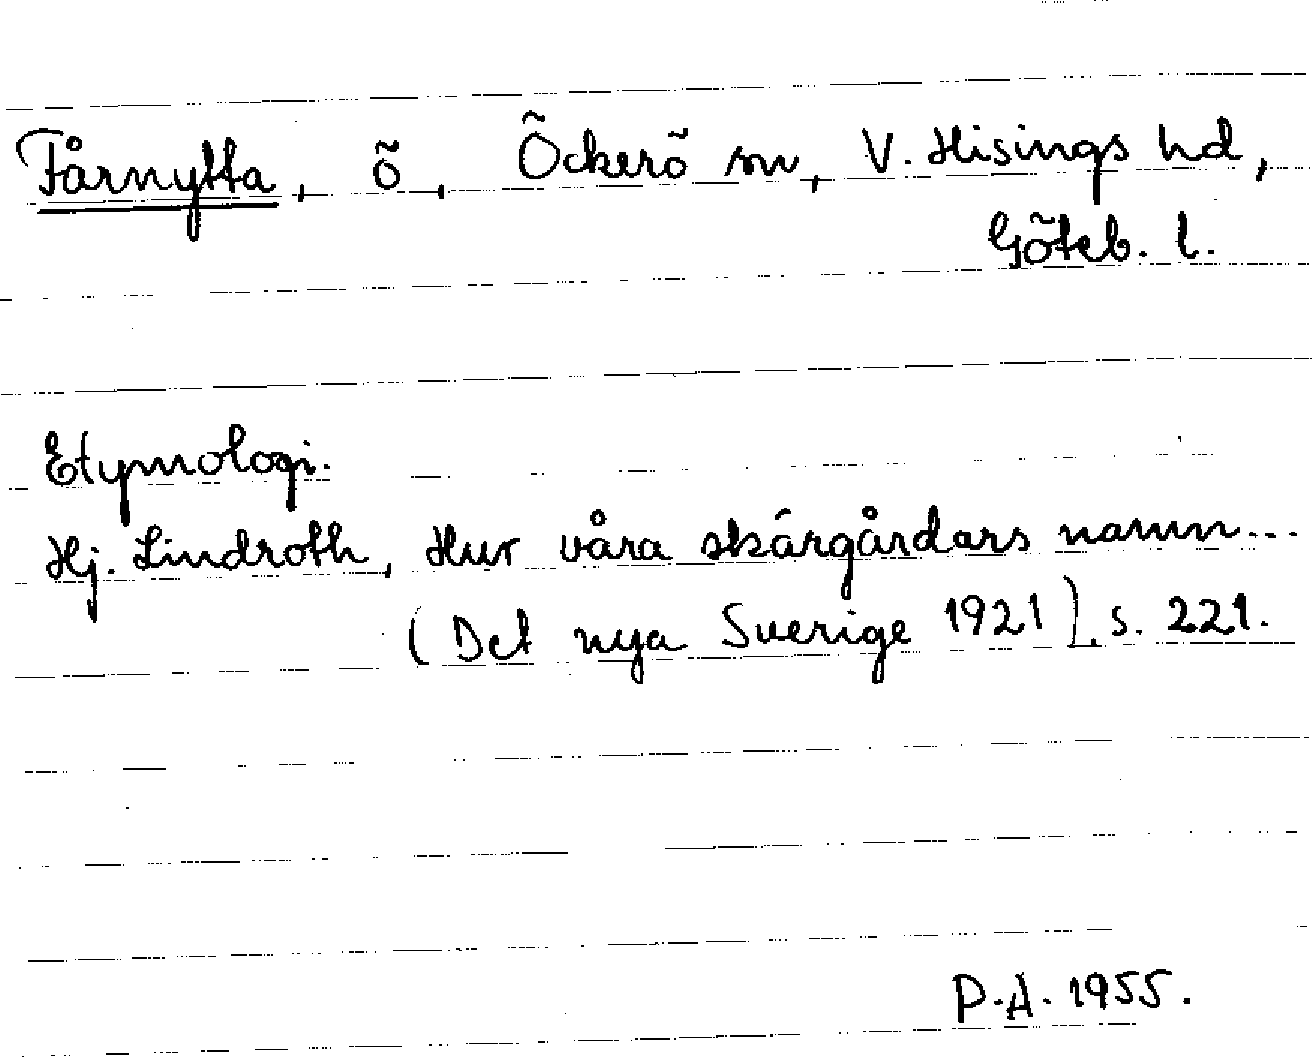 Fårnytta, ö, Öckerö sn, V. Hisings hd,
Göteb. l.
Etymologi.
Hj. Lindroth, Hur våra skärgårdars namn...
(Det nya Sverige 1921), s. 221.
P.A. 1955.